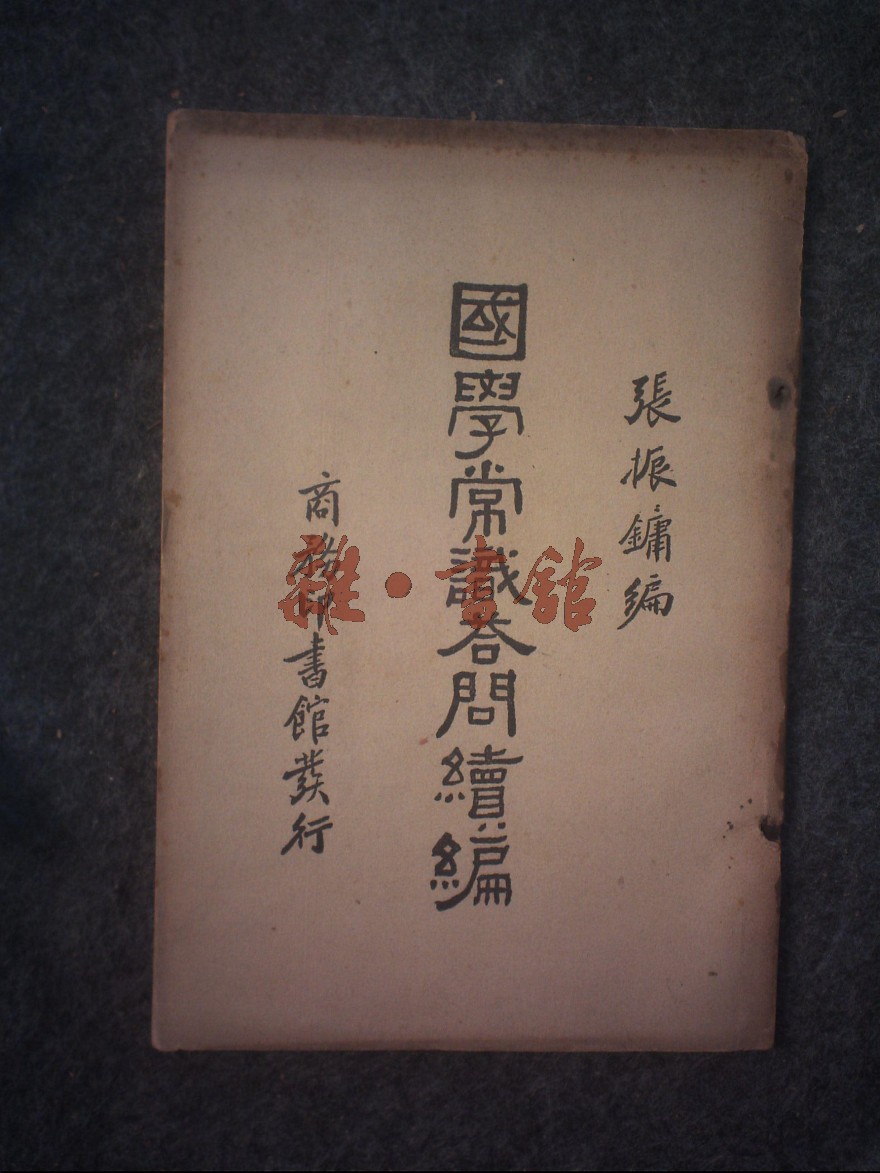 張振鏞編
國學常識答問續編
商務印書館發行
雜·書館